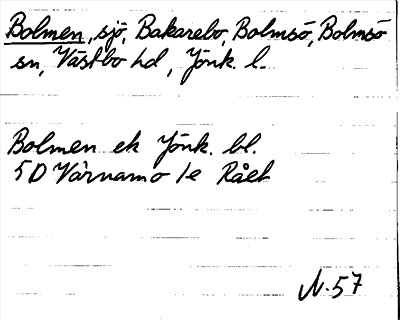 Bolmen, sjö, Bakarebo, Bolmsö, Bolmsö
sn, Västbo hd, Jönk. l.
Bolmen ek Jönk. bl.
5D Värnamo 1e Råek
N.57